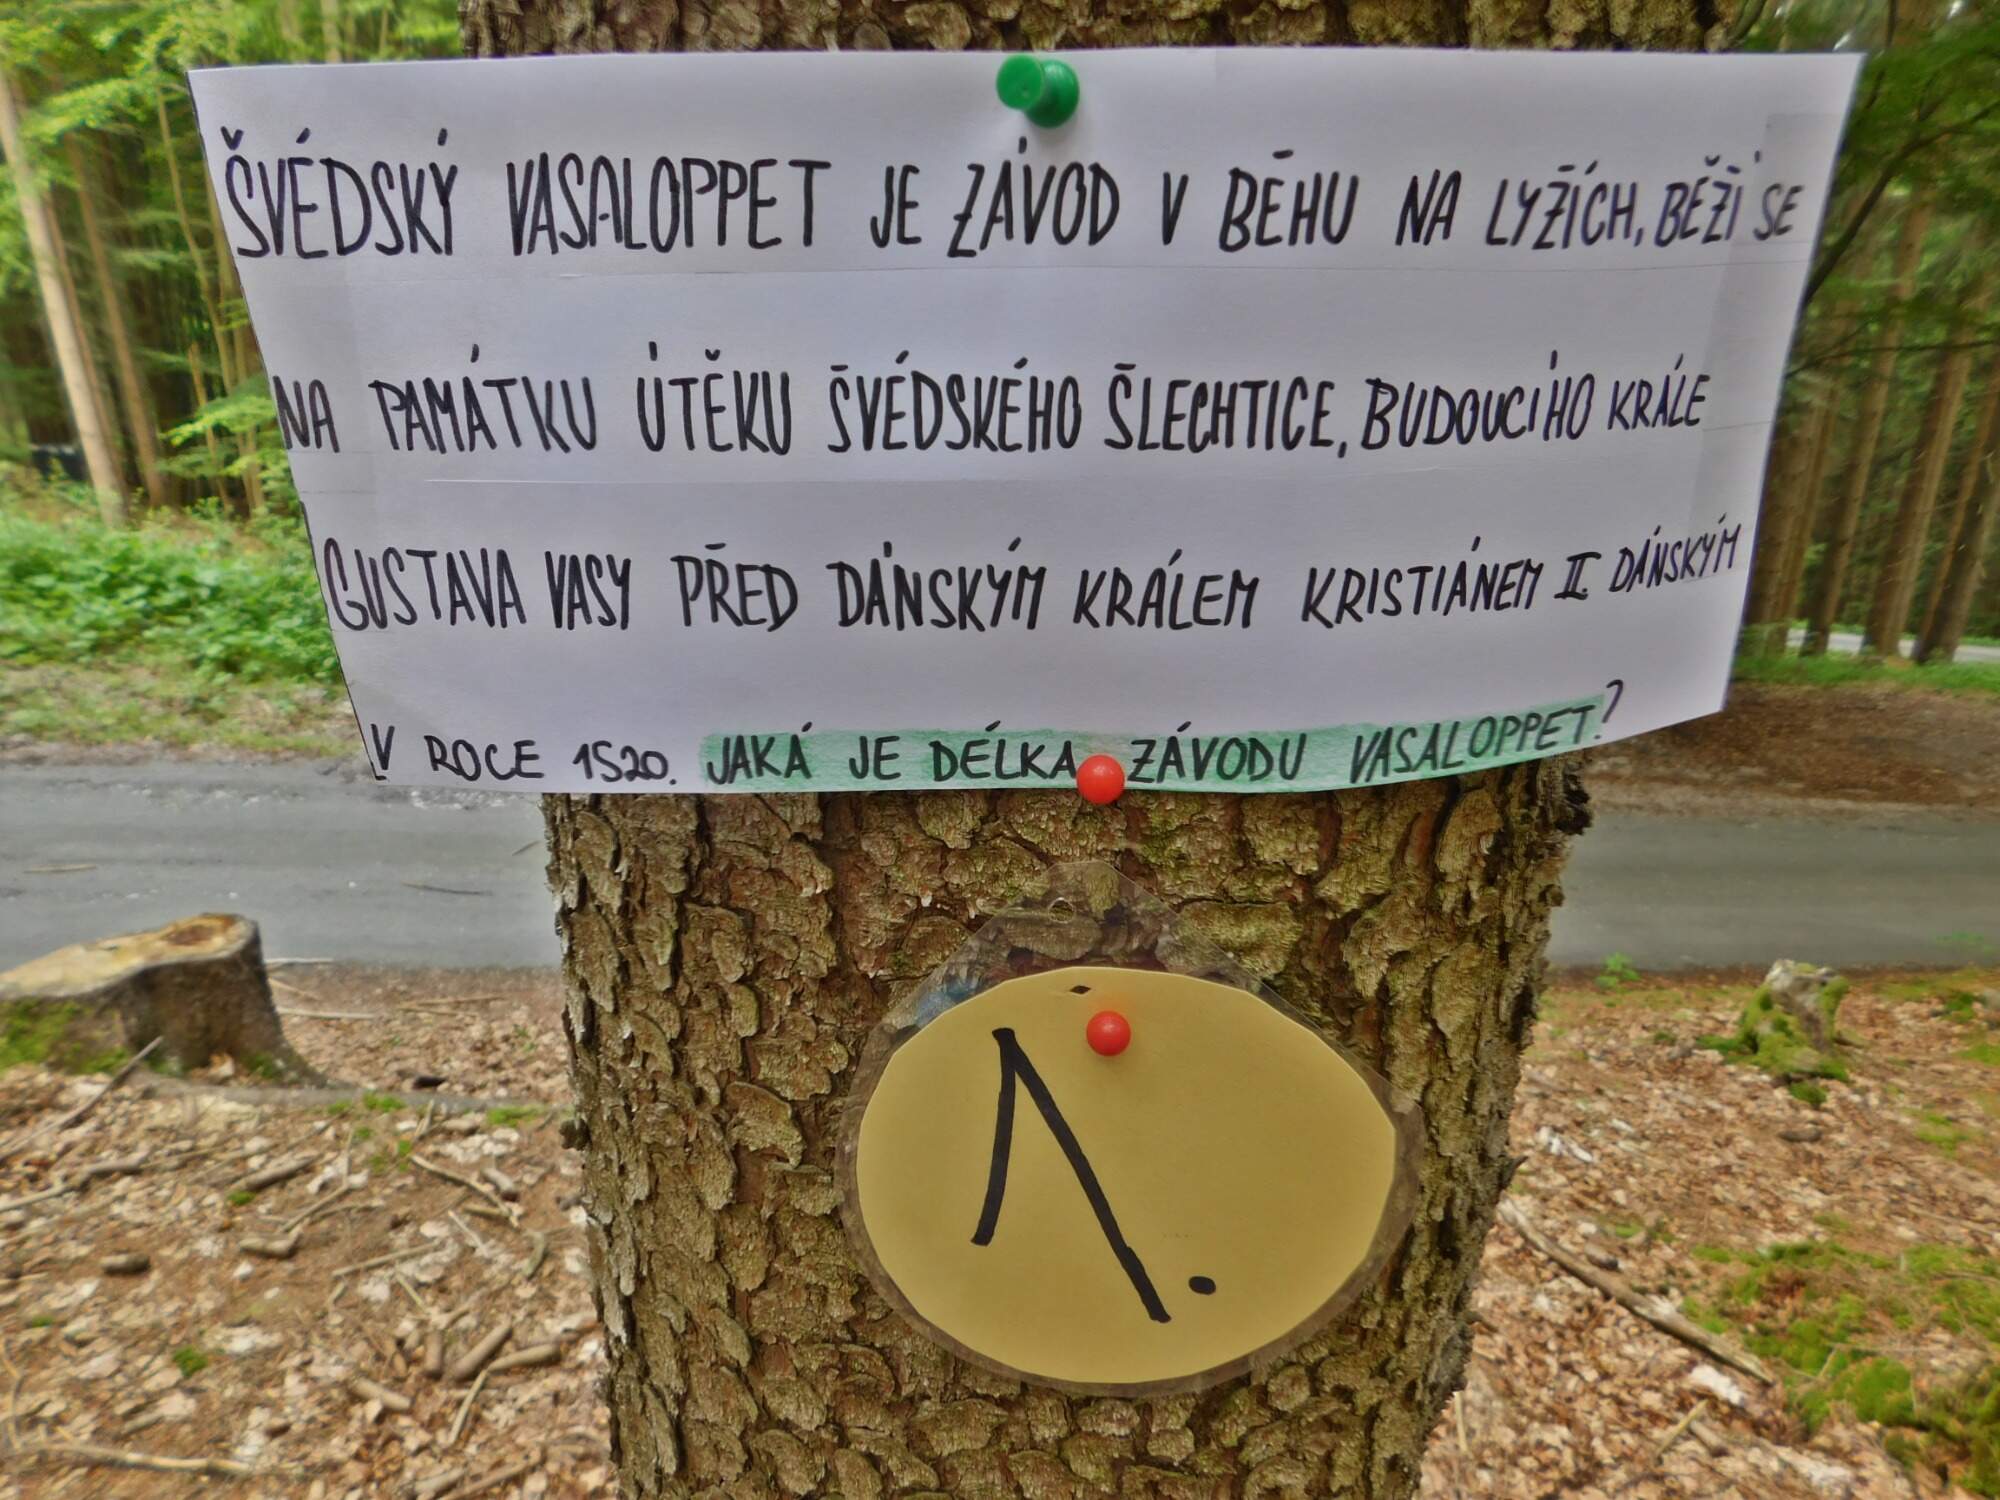 ŠVÉDSKÝ VASALOPPET JE ZÁVOD V BĚHU NA LYŽÍCH, BĚŽÍ SE
NA PAMÁTKU ÚTĚKU ŠVÉDSKÉHO ŠLECHTICE, BUDOUCÍHO KRÁLE
GUSTAVA VASY PŘED DÁNSKÝM KRÁLEM KRISTIÁNEM II. DÁNSKÝM
V ROCE 1520. JAKÁ JE DÉLKA ZÁVODU VASALOPPET?
1.